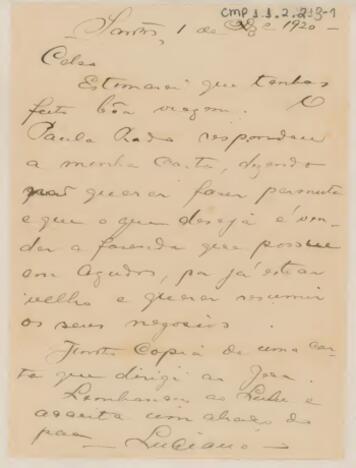 CMP 1.1.2.213-1
Santos, 1 de Dezº 1920 -
Celso
Estimarei que tenhas
feito bôa viagem. O
Paula respondeu
a minha carta, dizendo
não querer fazer permuta
e que o que deseja é ven-
der a fazenda que possue
em Agudos, por já estar
velho e querer resumir
os seus negocios.
Junto Copia de uma car-
ta que dirigi ao
Lembranças ao Lulu e
acceita um abraço do
pae - Luciano -